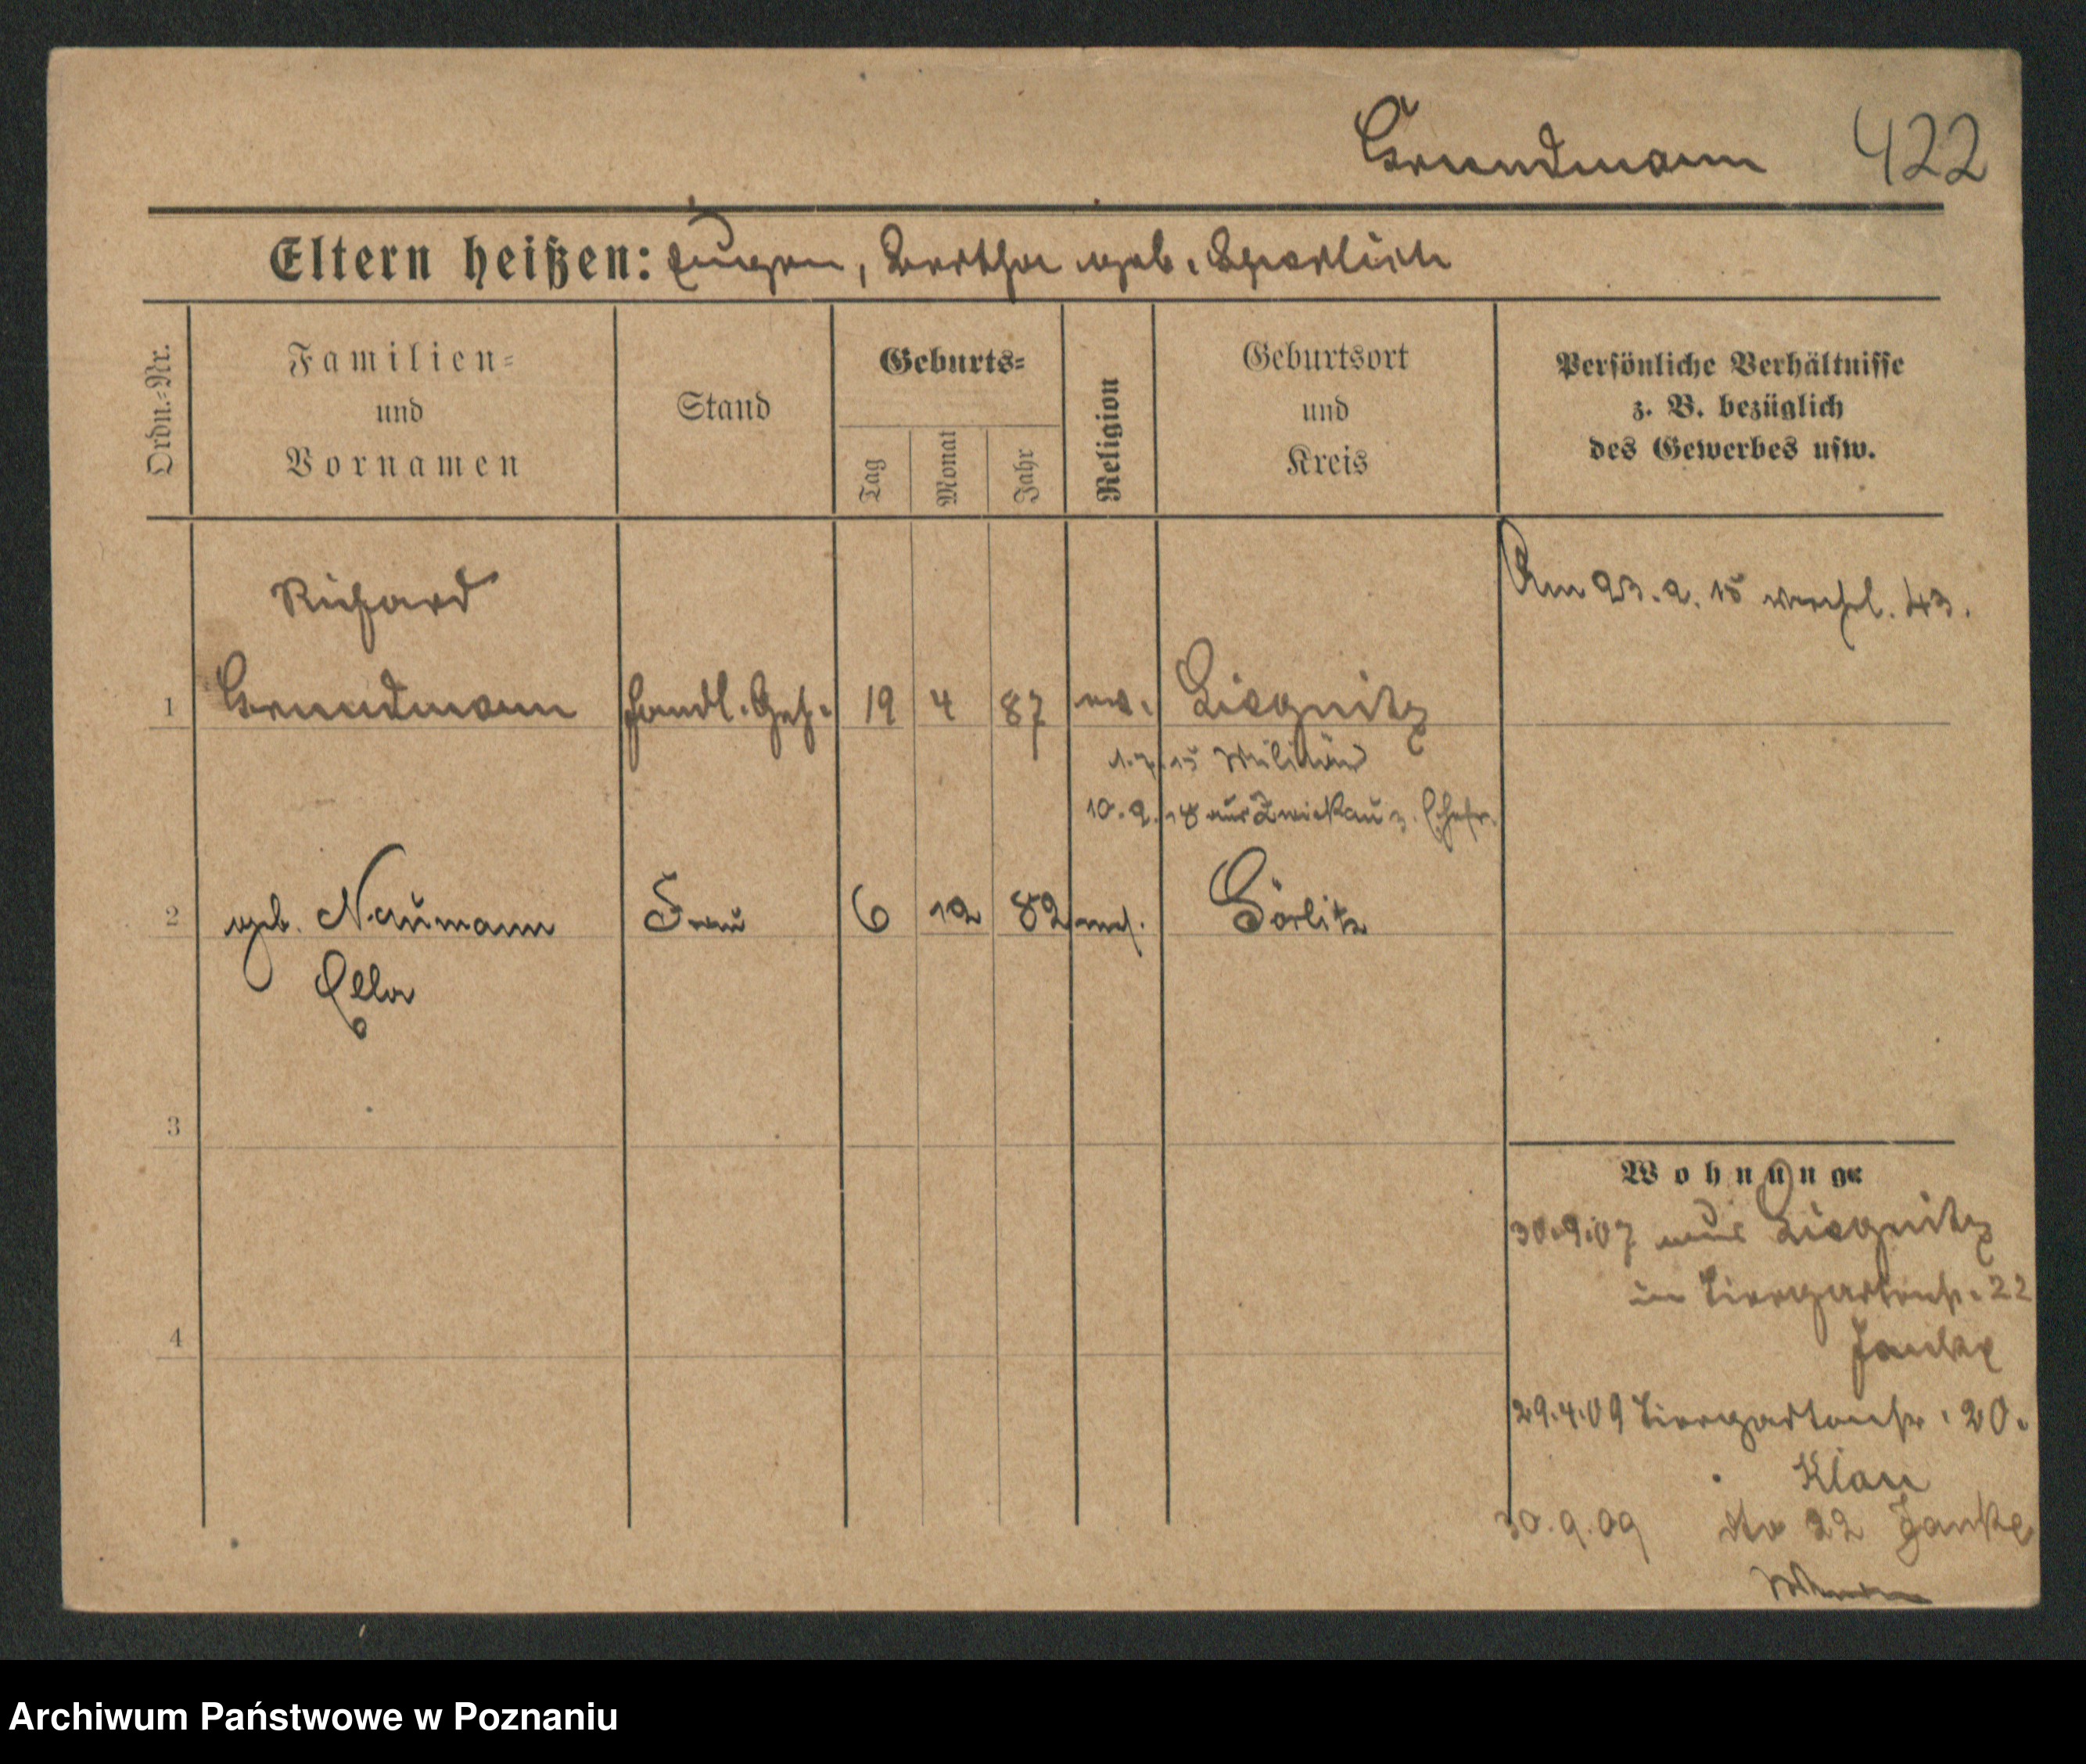 Grundmann 422
Eltern heißen: Eugen, Bertha geb. Sperlich
Ordn.=Nr.
Familien=
und
Vornamen
Stand
Geburts=
Tag
Monat
Jahr
Religion
Geburtsort
und
Kreis
Persönliche Verhältnisse
z. B. bezüglich
des Gewerbes usw.
Am 23. 2. 15 43.
Richard
1 Grundmann Handl. Geh. 19 4 87 ev. Liegnitz
1.7.15 Militär
10.2.18 aus Zwickau z. Ehefr.
2 geb. Naumann Frau 6 12 82 Görlitz
Ella
3
4
Wohnung
30.9.07 aus Liegnitz
in Tiergartenstr. 22
Janke
29.4.09 Tiergartenstr. 20.
Klau
30.9.09 dto 22 Janke
Archiwum Państwowe w Poznaniu